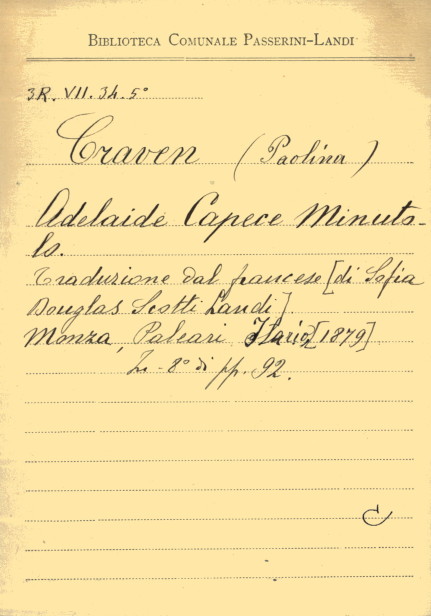 BIBLIOTECA COMUNALE PASSERINI-LANDI
3R. VII. 34. 5°
Craven (Paolina)
Adelaide Capece Minuto-
lo.
Traduzione dal francese [di Sofia
Douglas Scotti Landi].
Monza, Paleari Ilario, [1879]
In-8° di pp. 92.
C